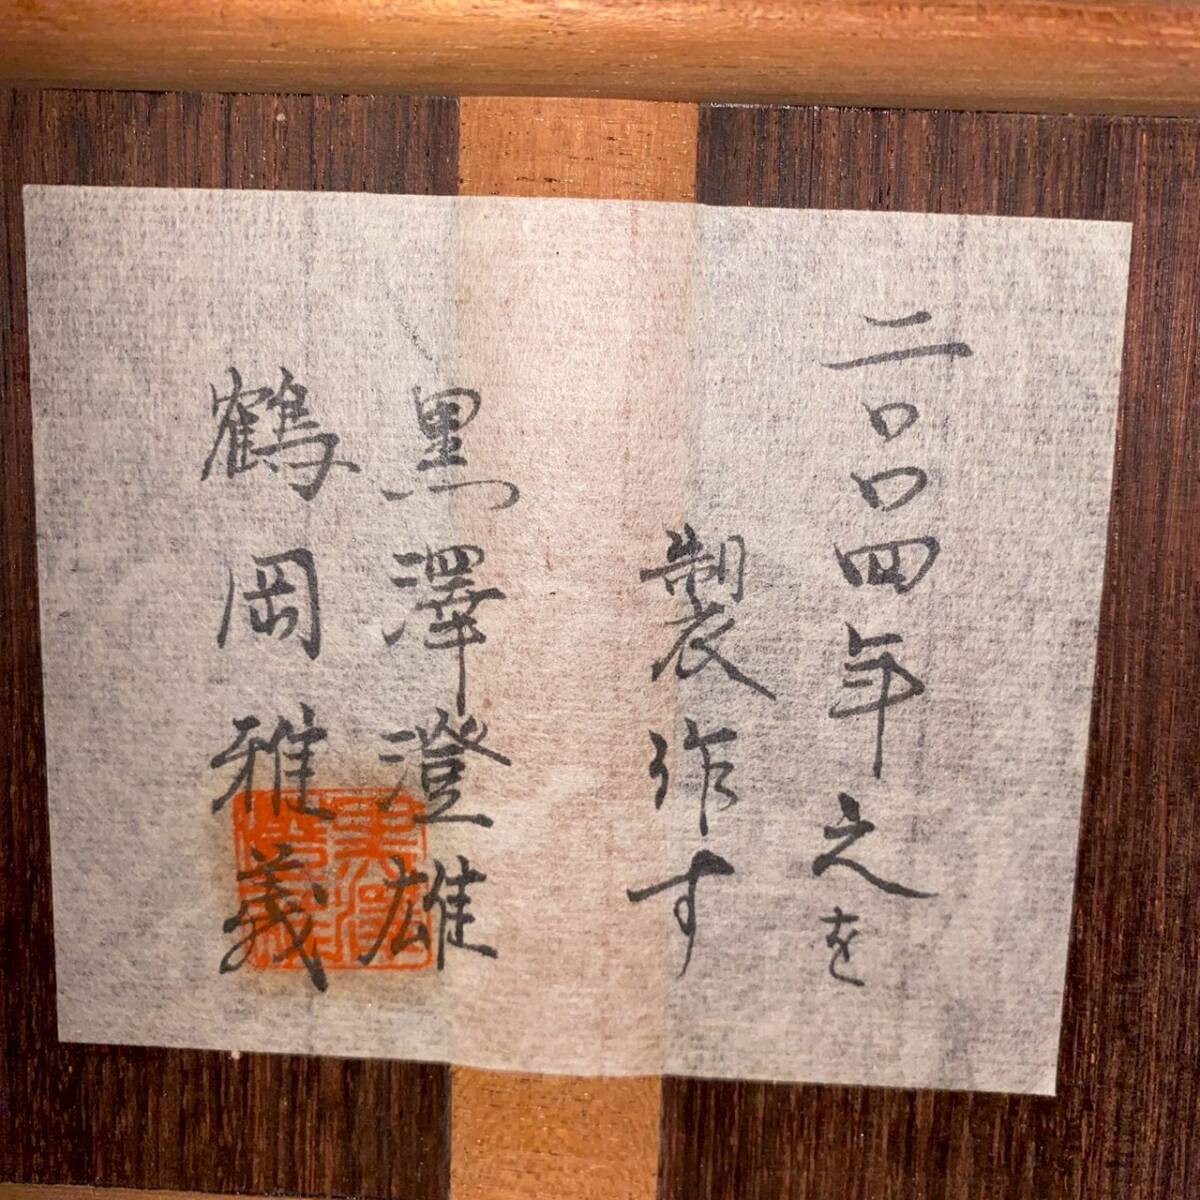 二〇〇四年之を
製作す
黒澤澄雄
鶴岡雅義